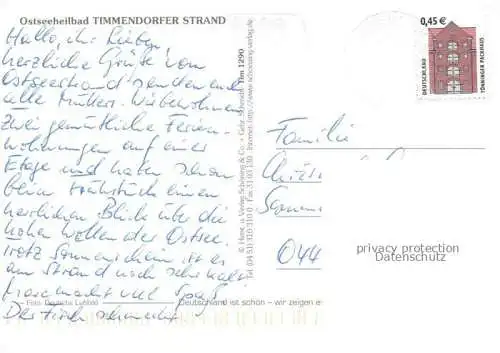 Ostseeheilbad TIMMENDORFER STRAND
Hallo, ihr Lieben,
herzliche Grüße vom
Ostseestrand senden euch
alle Müllers. Wir bewohnen
zwei gemütliche Ferien-
wohnungen auf einer
Etage und haben schon
beim Frühstück einen
herrlichen Blick über die
hohen Wellen der Ostsee.
Trotz Sonnenschein ist es
am Strand noch sehr kalt
macht viel Spaß
Der Fisch schmeckt
Foto: Deutsche Luftbild
Deutschland ist schön – wir zeigen es
Tim 1290
© Horst u. Verlag Schöning & Co. · Gebr. Schmidt
Tel. (04 51) 3 10 31 0 · Fax 31 03 130 · Internet: http://www.schoening-verlag.de
0,45 €
DEUTSCHLAND
TÖNNINGER PACKHAUS
Familie
044
privacy protection
Datenschutz